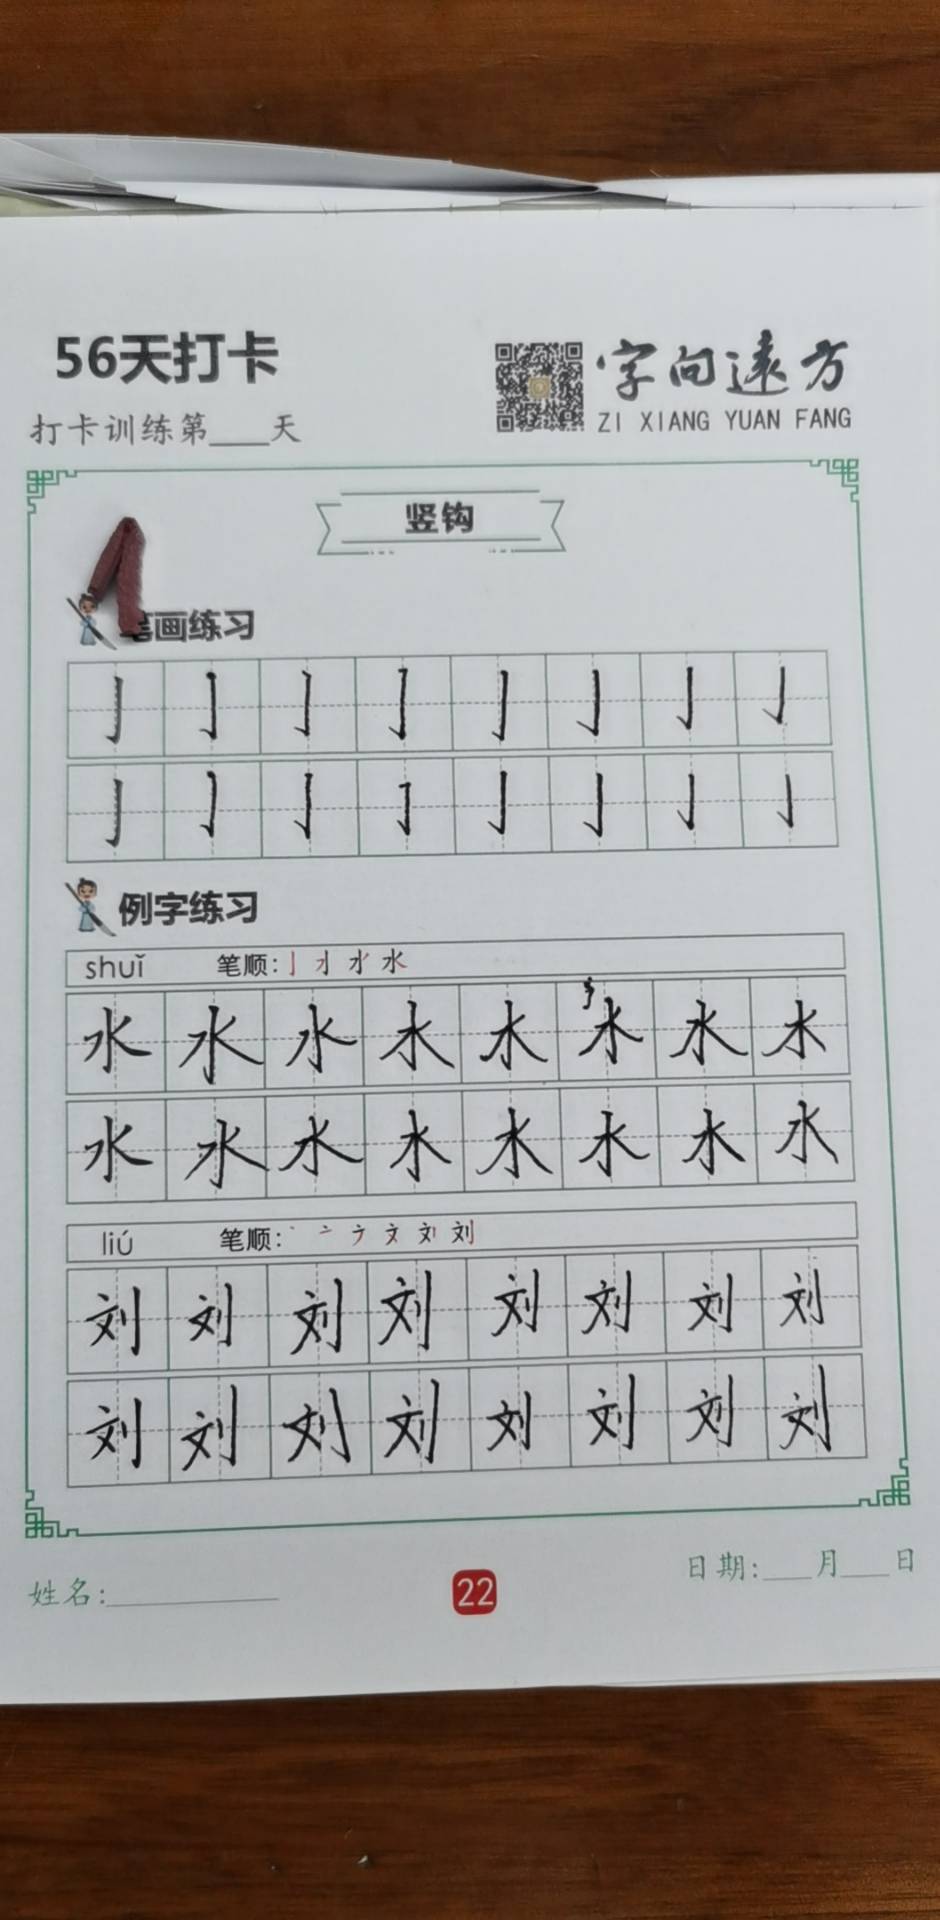 56天打卡
字向遠方
打卡训练第___天
ZI XIANG YUAN FANG
竖钩
笔画练习
亅亅亅亅亅亅亅亅
亅亅亅亅亅亅亅亅
例字练习
shuǐ 笔顺: 水
水水水水水水水水
水水水水水水水水
liú 笔顺: 刘
刘刘刘刘刘刘刘刘
刘刘刘刘刘刘刘刘
姓名:___ 22 日期:___月___日